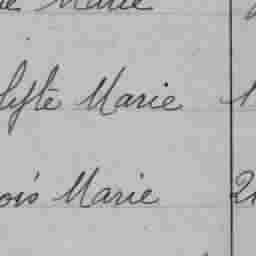 Marie
lyste Marie 1
ois Marie 2